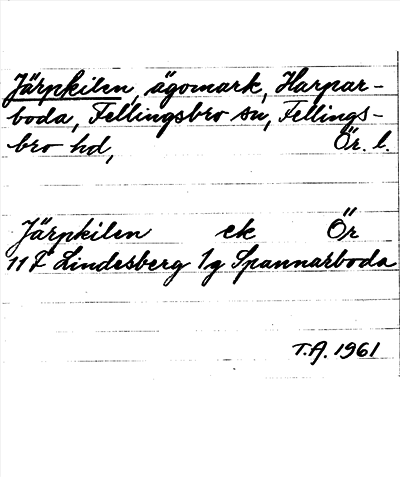 Järpkilen, ägomark, Harpar-
boda, Fellingsbro sn, Fellings-
bro hd, Ör. l.
Järpkilen ek Ör
11 F Lindesberg 1g Spannarboda
T.A. 1961